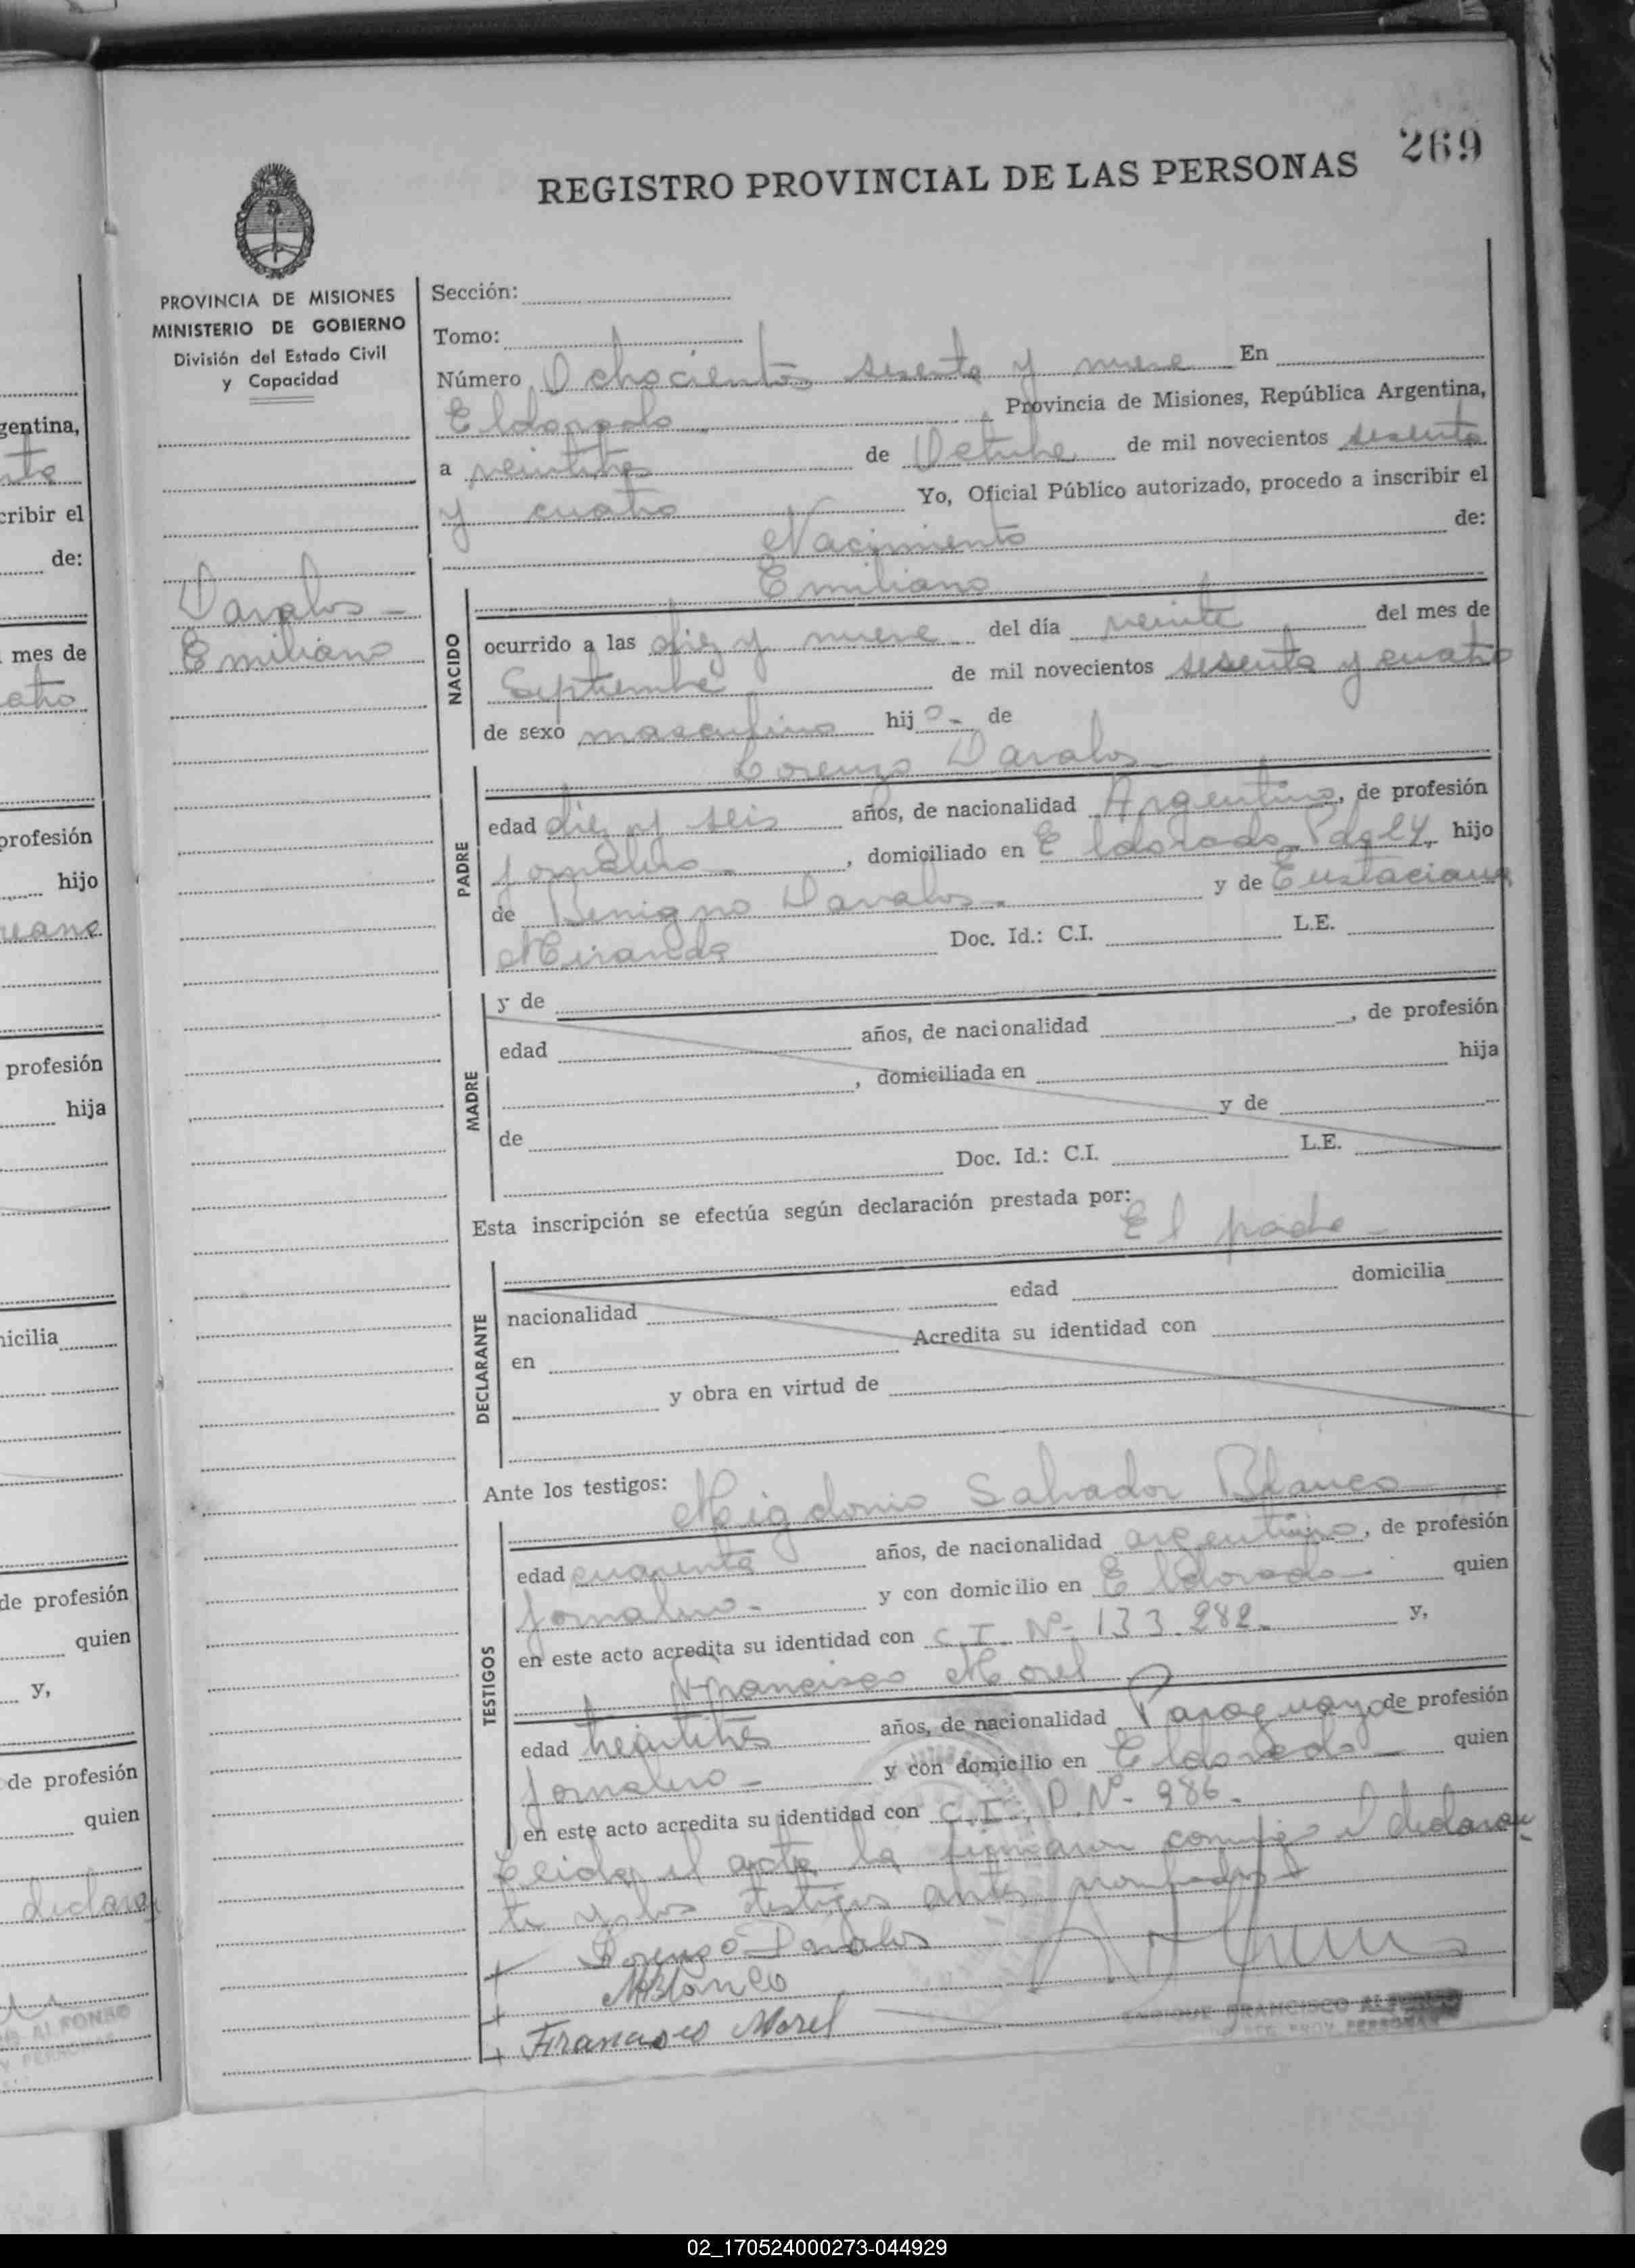 269
REGISTRO PROVINCIAL DE LAS PERSONAS
PROVINCIA DE MISIONES
MINISTERIO DE GOBIERNO
División del Estado Civil
y Capacidad
Davalos -
Emiliano
Sección:
Tomo:
Número Ochocientos sesenta y nueve En
Eldorado - Provincia de Misiones, República Argentina,
a veintitres de Octubre de mil novecientos sesenta
y cuatro Yo, Oficial Público autorizado, procedo a inscribir el
Nacimiento de:
Emiliano
NACIDO
ocurrido a las diez y nueve del día veinte del mes de
Septiembre de mil novecientos sesenta y cuatro
de sexo masculino hijo - de
Lorenzo Davalos -
PADRE
edad diez y seis años, de nacionalidad Argentino, de profesión
jornalero - , domiciliado en Eldorado, hijo
de Benigno Davalos - y de Eustaciana
Miranda Doc. Id.: C.I. L.E.
MADRE
y de
edad años, de nacionalidad , de profesión
, domiciliada en hija
de y de
Doc. Id.: C.I. L.E.
Esta inscripción se efectúa según declaración prestada por: El padre -
DECLARANTE
nacionalidad edad domicilia
en Acredita su identidad con
y obra en virtud de
Ante los testigos: Migdonio Salvador Blanco
TESTIGOS
edad cuarenta años, de nacionalidad argentino, de profesión
jornalero - y con domicilio en Eldorado - quien
en este acto acredita su identidad con C.I. Nº 133.282 - y,
Francisco Morel
edad años, de nacionalidad Paraguayo de profesión
jornalero - y con domicilio en Eldorado - quien
en este acto acredita su identidad con C.I. P. Nº 986.
Leida el acta la firmaron conmigo el declaran
te y los testigos antes nombrados
Lorenzo Davalos
MBlanco
Francisco Morel
ENRIQUE FRANCISCO ALFONSO
gentina,
cribir el
de:
mes de
profesión
hijo
profesión
hija
nicilia
de profesión
quien
y,
de profesión
quien
declara
ALFONSO
02_170524000273-044929